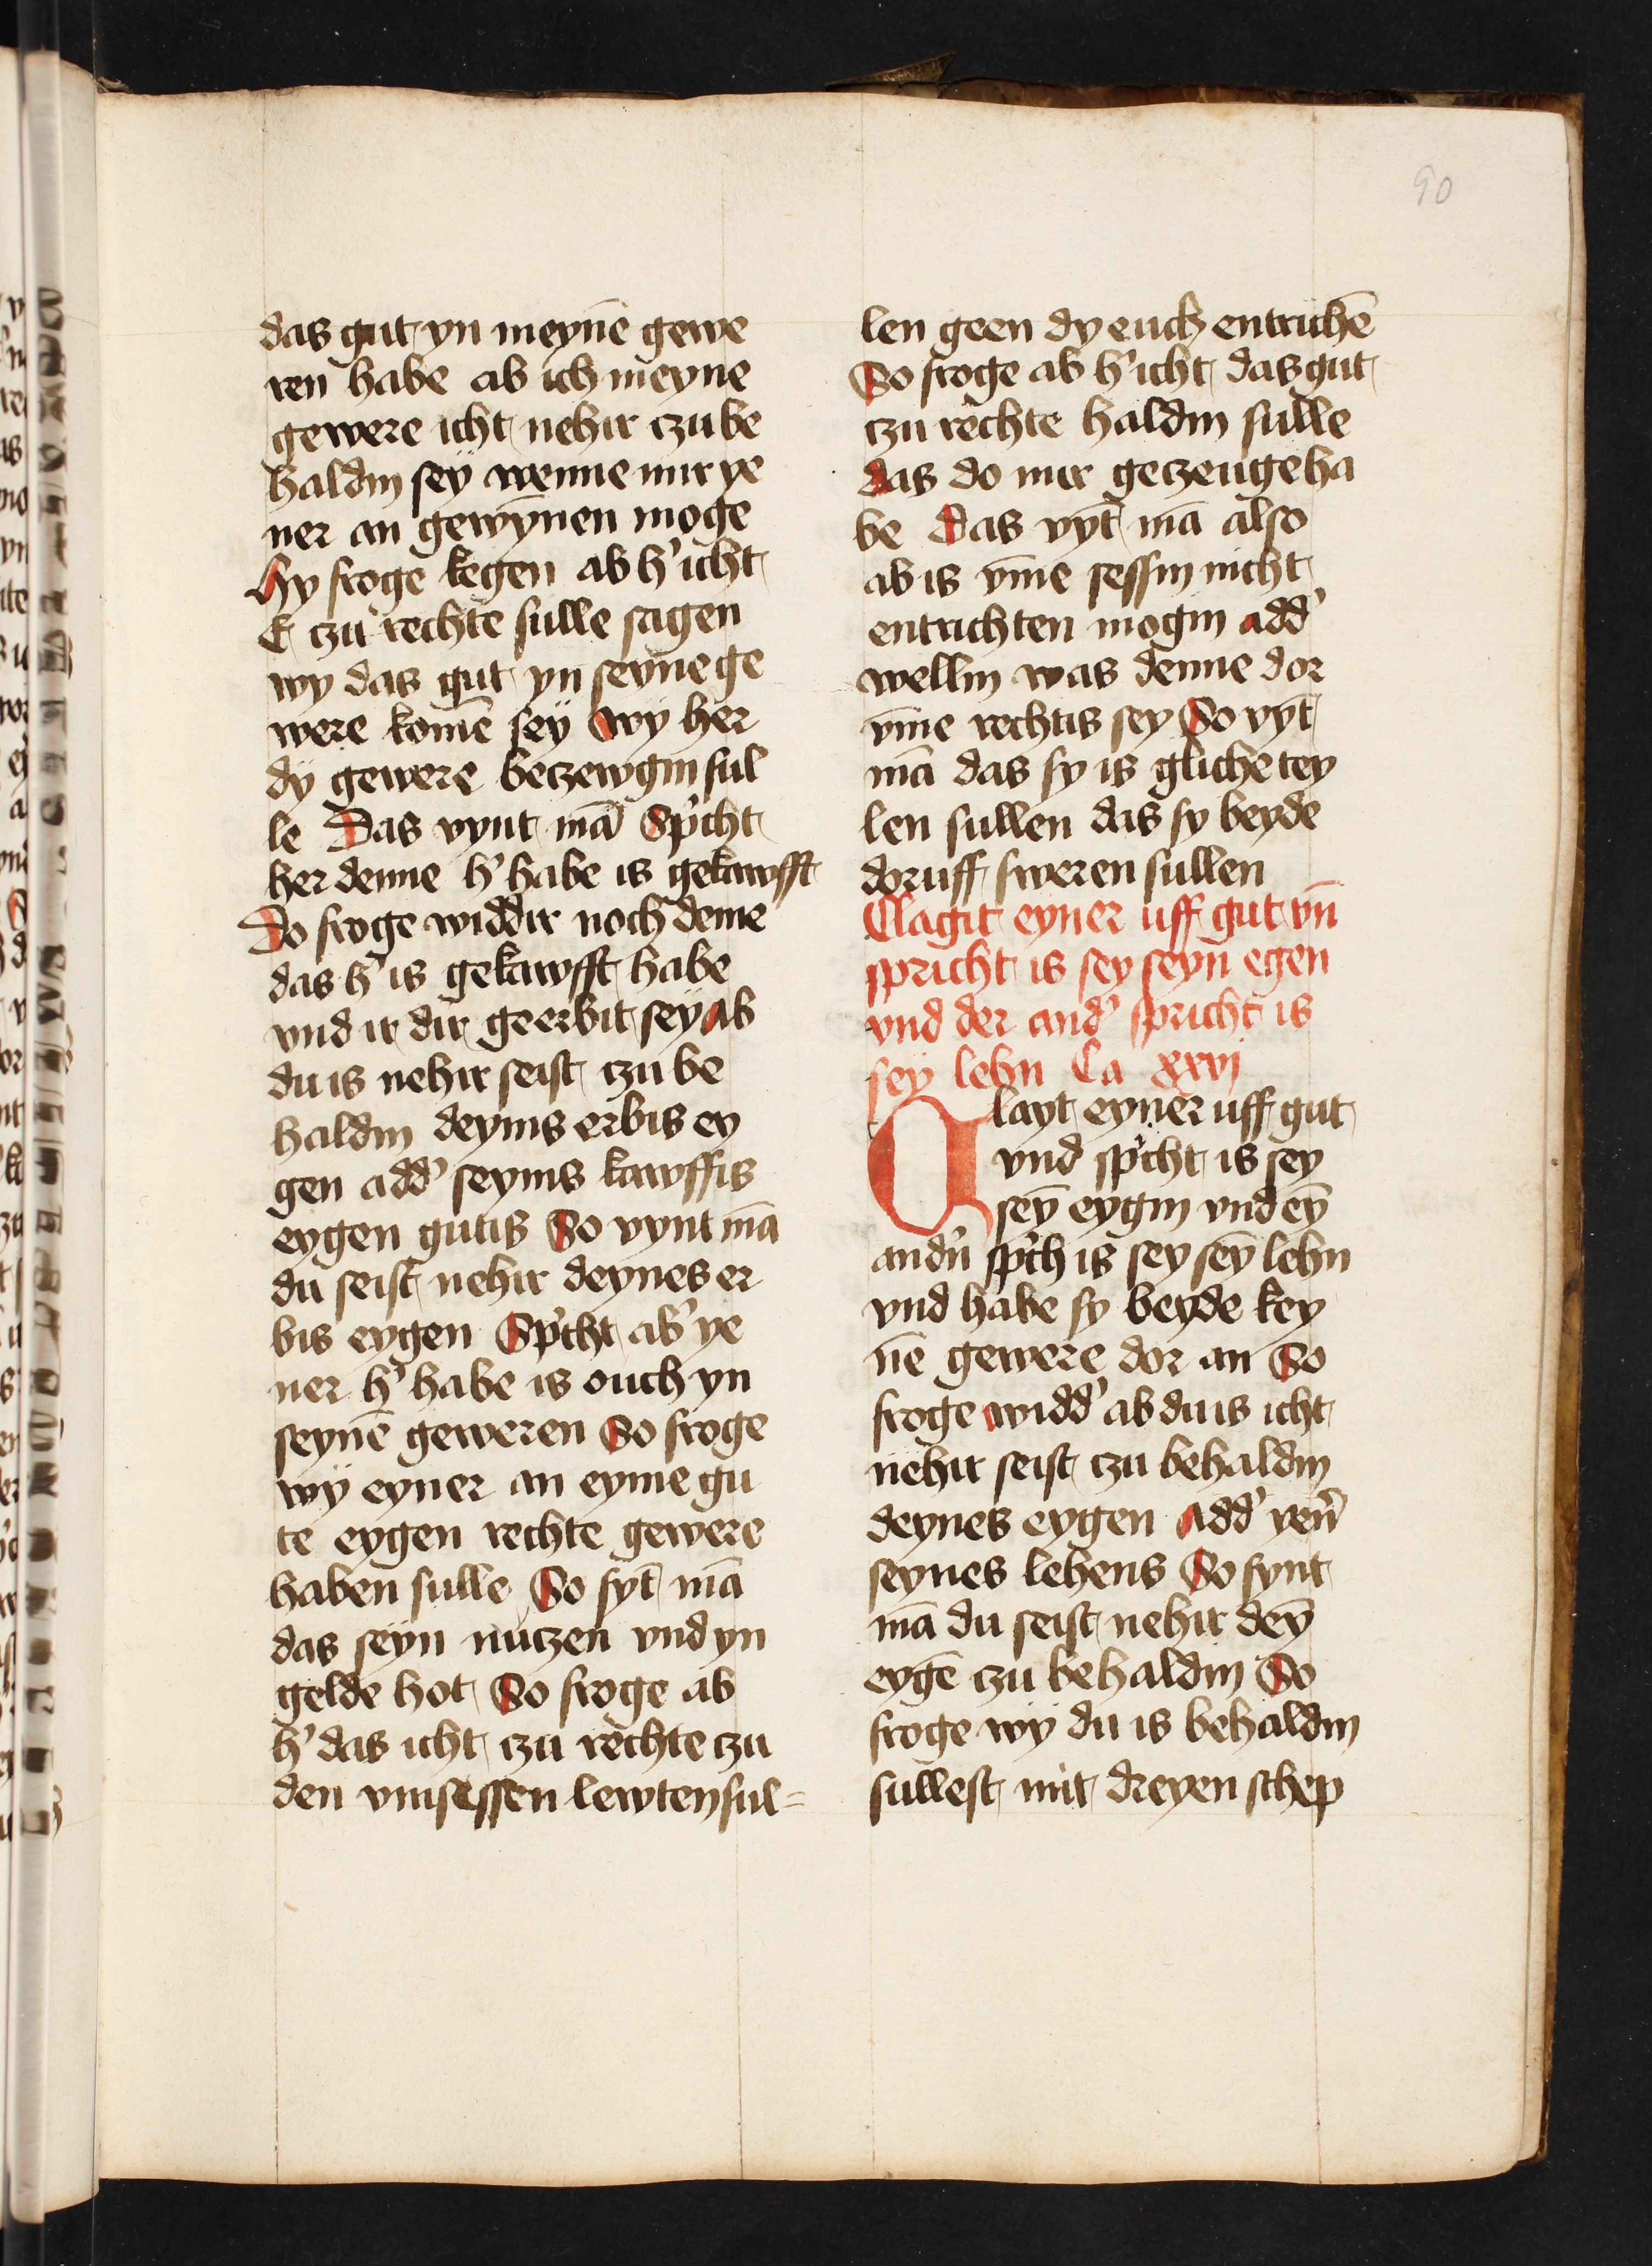 90
das gut yn meynē gewe
ren habe ab ich meyne
gewere icht nehir czu be
haldin sey wenne mir ye
ner an gewynnen moge
Hy froge kegen ab h' icht
E czu rechte sulle sagen
wy das gut yn seyne ge
were komē sey Wy her
dy gewere beczewgin sul
le Das vynt mā Sp'cht
her denne h' habe is gekawfft
Do froge widdir noch deme
das h' is gekawfft habe
vnd ir dir geerbit sey Ab
du is nehir seist czu be
haldin deynis erbis ey
gen add' seynis kawffis
eygen gutis So vynt mā
du seist nehir deynes er
bis eygen Sp'cht ab' ye
ner h' habe is ouch yn
seynē geweren So froge
wy eyner an eyme gu
te eygen rechte gewere
haben sulle So fyt mā
das seyn nutzen vnd yn
gelde hot So froge ab
h' das icht czu rechte czu
den vmsessen lewten sul=
len geen dy euch entrichē
So froge ab h' icht das gut
czu rechte haldin sulle
das do mer geczeuge ha
be Das vyt mā also
ab is vm̄e sessin nicht
entrichten mogin add'
wellin was denne dor
vm̄e rechtis sey So vyt
mā das sy is gliche tey
len sullen das sy beyde
doruff sweren sullen
Clagit eyner uff gut vn̄
spricht is sey seyn egen
vnd der and' spricht is
sey lehn Ca xxvj
Clayt eyner uff gut
vnd sp'cht is sey
sey̅ eygin vnd ey̅
andn̄ sp'ch is sey sey̅ lehn
vnd habe sy beyde key
nē gewere dor an So
froge widd' ab du is icht
nehir seist czu behaldin
deynes eygen Add' yen̄
seynes lehens So fynt
mā du seist nehir dey̅
eygē czu behaldin So
froge wy du is behaldin
sullest mit dreyen schep